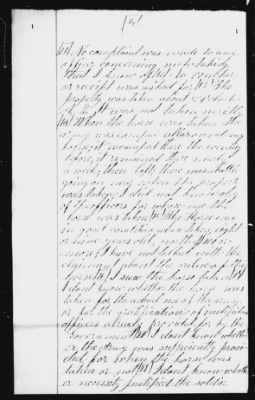 No complaint was made to any
officer concerning such taking
that I know of. No voucher
or receipt was asked for. The
property was taken about
not taken secretly
When the horse was taken the
army was camped all around my
house, it encamped there the evening
before, it remained there nearly
a week, then left. there was battle
going on very when the property
was taken, I did not know any
of the officers the
horse was taken The Horse was
in good condition when taken, eight
or nine years old, worth $100 or
more, I have not talked with the
claimant about the value of the
I saw the horse taken
I dont know whether the horse was
taken for the actual use of the army
or for the gratification of individual
officers already provided for by the
Government I dont know whether
the army was sufficiently provi-
ded for when the horse was
taken or not I dont know whether
or necessity justified the soldier